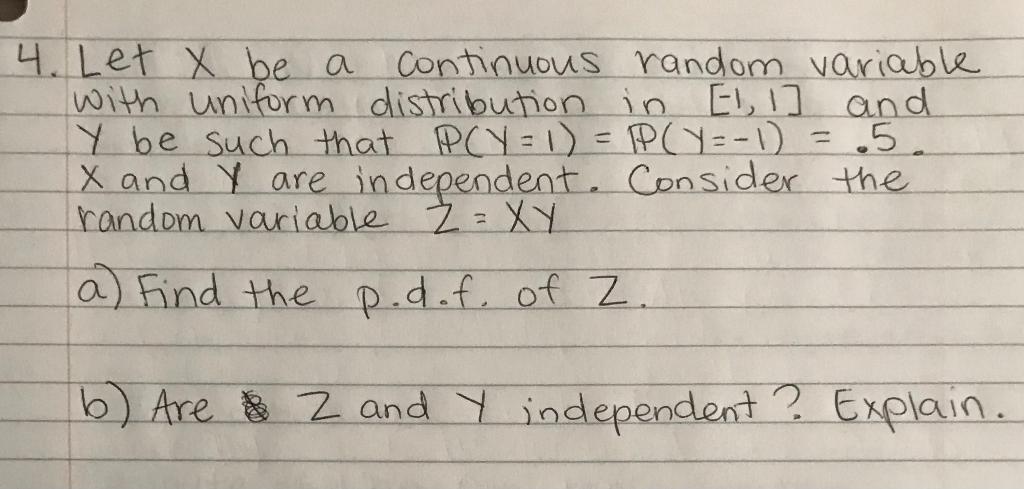 4. Let X be a continuous random variable
with uniform distribution in [-1, 1] and
Y be such that ℙ(Y=1) = ℙ(Y=-1) = .5.
X and Y are independent. Consider the
random variable Z = XY
a) Find the p.d.f. of Z.
b) Are Z and Y independent? Explain.